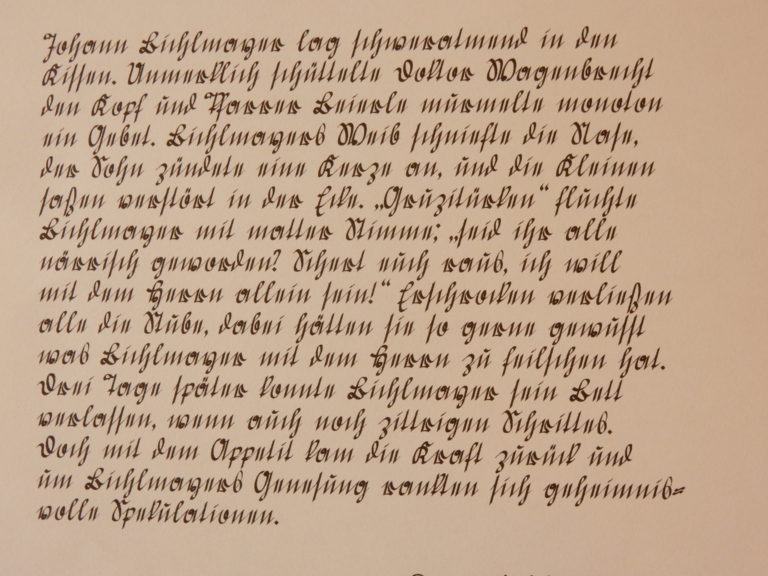 Johann Bichlmayer lag schweratmend in den
Kissen. Unmerklich schüttelte Doktor Wagenbrecht
den Kopf und Pfarrer Beierle murmelte monoton
ein Gebet. Bichlmayers Weib schniefte die Nase,
der Sohn zündete eine Kerze an, und die Kleinen
saßen verstört in der Ecke. „Gruzitürken“ fluchte
Bichlmayer mit matter Stimme; „seid ihr alle
närrisch geworden? Schert euch raus, ich will
mit dem Herrn allein sein!“ Erschrocken verließen
alle die Stube, dabei hätten sie so gerne gewußt
was Bichlmayer mit dem Herrn zu feilschen hat.
Drei Tage später konnte Bichlmayer sein Bett
verlassen, wenn auch noch zittrigen Schrittes.
Doch mit dem Appetit kam die Kraft zurück und
um Bichlmayers Genesung rankten sich geheimnis=
volle Spekulationen.